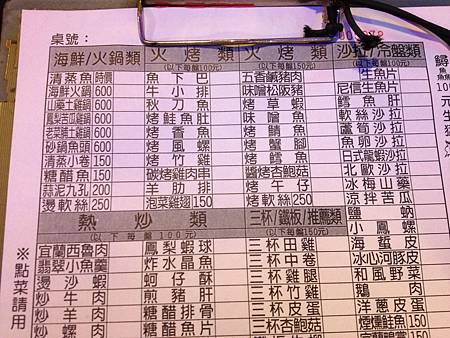 桌號：
海鮮/火鍋類
清蒸魚 時價
海鮮火鍋 600
山藥土雞鍋 600
鳳梨苦瓜雞鍋 600
老菜脯土雞鍋 600
砂鍋魚頭 600
清蒸小卷 150
糖醋魚 150
蒜泥九孔 200
燙軟絲 250
火烤類
(以下每盤100元)
魚下巴
牛小排
秋刀魚
烤鮭魚肚
烤香魚
烤風螺
烤竹雞
碳烤雞肉串
羊肋排
泡菜雞翅 150
火烤類
(以下每盤150元)
五香鹹豬肉
味噌松阪豬
烤草蝦
味噌魚
烤鯖魚
烤蟹腳
烤苦螺
醬烤杏鮑菇
烤午仔
烤軟絲 250
沙拉/冷盤類
(以下每盤100元)
生魚片
尼信生魚片
鱈魚肝
軟絲沙拉
蘆筍沙拉
魚卵沙拉
日式龍蝦沙拉
北歐沙拉
冰梅山藥
涼拌苦瓜
鹽蚋
小鳳螺
海蜇皮
冰心河豚皮
和風野菜
鵝肉
洋蔥皮蛋
煙燻鮭魚 150
熱炒類
(以下每盤100元)
宜蘭西魯肉
翡翠小魚羹
燙沙蝦
炒牛肉
炒羊肉
炒螺肉
鳳梨蝦球
炸水晶魚
蚵仔酥
煎豬肝
糖醋排骨
糖醋魚片
三杯/鐵板/推薦類
(以下每盤150元)
三杯田雞
三杯中卷
三杯雞腿
三杯竹雞
三杯皮蛋
三杯杏鮑菇
※點菜請用